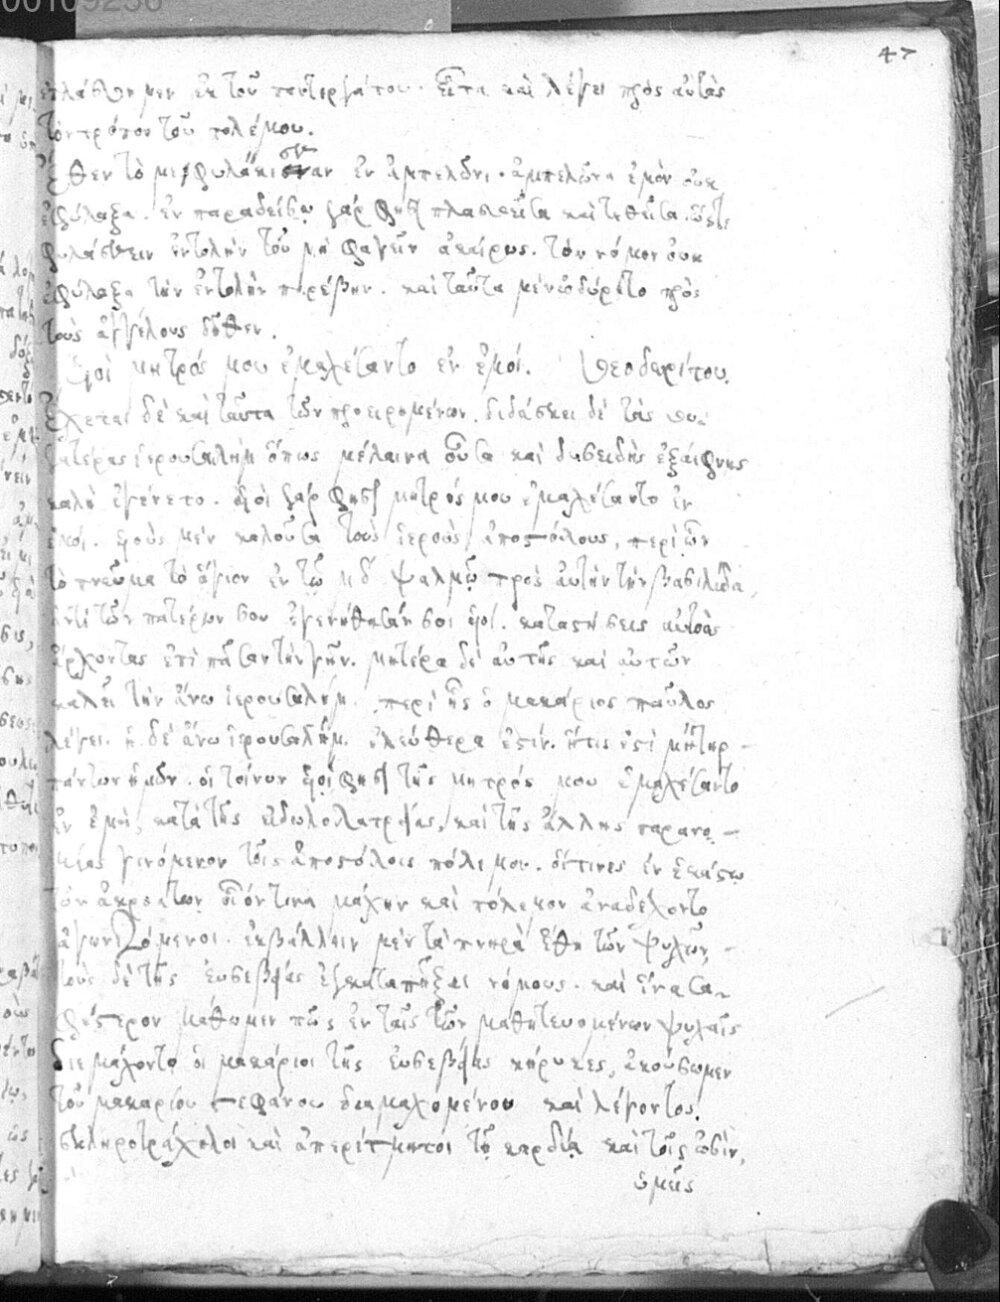 00109256
47
ἐπλάσθημεν ἐκ τοῦ παντεργάτου. εἶτα καὶ λέγει πρὸς αὐτὰς
τὸν τρόπον τοῦ πολέμου.
Ἔθεντό με φυλάκισσαν ἐν ἀμπελῶνι. ἀμπελῶνα ἐμὸν οὐκ
ἐφύλαξα. ἐν παραδείσῳ γάρ φησι πλασθεῖσα καὶ τεθεῖσα ὥστε
φυλάσσειν ἐντολὴν τοῦ μὴ φαγεῖν ἀκαίρως. τὸν νόμον οὐκ
ἐφύλαξα τὴν ἐντολὴν παρέβην. καὶ ταῦτα μὲν ὠδύρετο πρὸς
τοὺς ἀγγέλους
Υἱοὶ μητρός μου ἐμαχέσαντο ἐν ἐμοί. Θεοδωρίτου.
Ἔχεται δὲ καὶ ταῦτα τῶν προειρημένων. διδάσκει δὲ τὰς θυ-
γατέρας ἱερουσαλὴμ ὅπως μέλαινα οὖσα καὶ δυσειδὴς ἐξαίφνης
καλὴ ἐγένετο. υἱοὶ γάρ φησι μητρός μου ἐμαχέσαντο ἐν
ἐμοί. υἱοὺς μὲν καλοῦσα τοὺς ἱεροὺς ἀποστόλους, περὶ ὧν
τὸ πνεῦμα τὸ ἅγιον ἐν τῷ μδ ψαλμῷ πρὸς αὐτὴν τὴν βασιλίδα,
ἀντὶ τῶν πατέρων σου ἐγενήθησάν σοι υἱοί. καταστήσεις αὐτοὺς
ἄρχοντας ἐπὶ πᾶσαν τὴν γῆν. μητέρα δὲ αὐτῆς καὶ αὐτῶν
καλεῖ τὴν ἄνω ἱερουσαλήμ. περὶ ἧς ὁ μακάριος παῦλος
λέγει. ἡ δὲ ἄνω ἱερουσαλὴμ ἐλευθέρα ἐστίν. ἥτις ἐστὶ μήτηρ
πάντων ἡμῶν. οἱ τοίνυν υἱοί φησι τῆς μητρός μου ἐμαχέσαντο
ἐν ἐμοί, κατὰ τῆς εἰδωλολατρείας, καὶ τῆς ἄλλης παρανο-
μίας γινόμενον τοῖς ἀποστόλοις πόλεμον. οἵτινες ἐν ἑκάστῳ
τῶν ἀκροατῶν οἱόντινα μάχην καὶ πόλεμον ἀναδέχοντο
ἀγωνιζόμενοι. ἐκβάλλειν μὲν τὰ πονηρὰ ἔθη τῶν ψυχῶν,
τοὺς δὲ τῆς εὐσεβείας ἐγκαταπῆξαι νόμους. καὶ ἵνα σα-
φέστερον μάθωμεν πῶς ἐν ταῖς τῶν μαθητευομένων ψυχαῖς
διεμάχοντο οἱ μακάριοι τῆς εὐσεβείας κήρυκες, ἀκούσωμεν
τοῦ μακαρίου στεφάνου διαμαχομένου καὶ λέγοντος.
σκληροτράχηλοι καὶ ἀπερίτμητοι τῇ καρδίᾳ καὶ τοῖς ὠσὶν,
ὑμεῖς